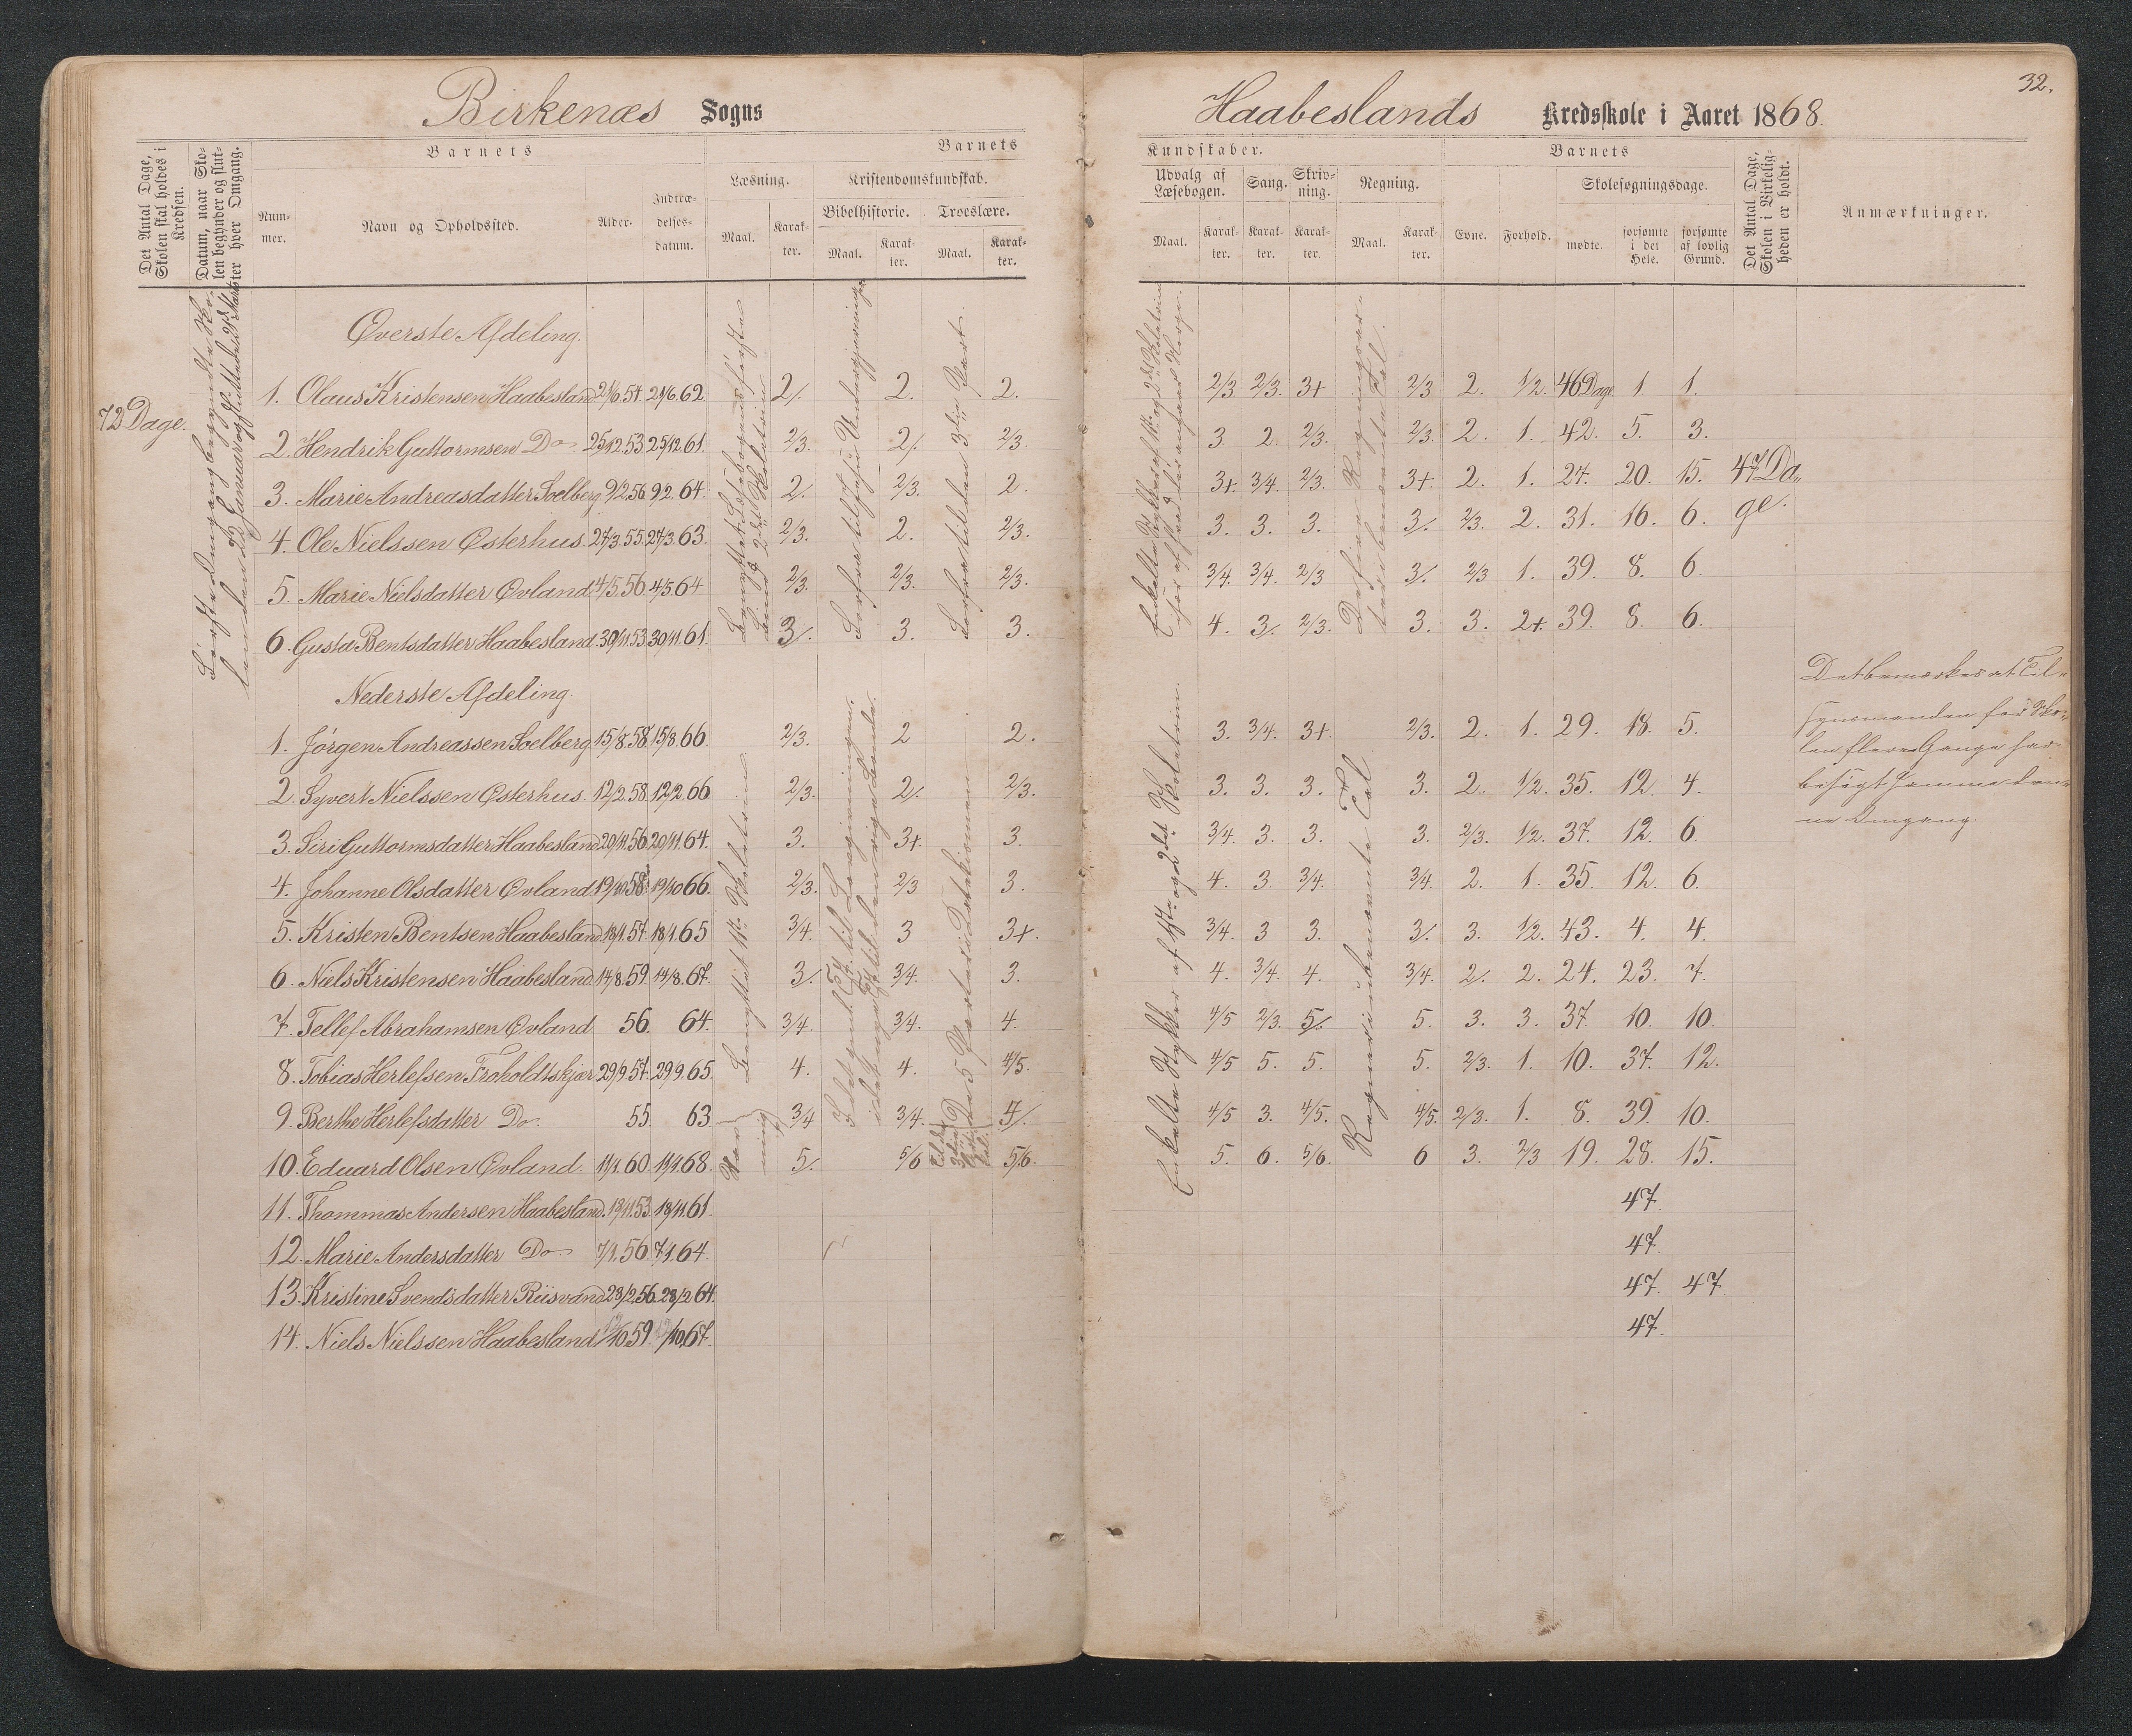 Birkenæs Sogns
Haabeslands Kredsskole i Aaret 1868.
32.
Det Antal Dage, Skolen skal holdes i Kredsen.
Datum, naar Skolen begynder og slutter hver Omgang.
Barnets
Nummer.
Navn og Opholdssted.
Alder.
Indtrædelsesdatum.
Barnets
Læsning.
Maal.
Karakter.
Kristendomskundskab.
Bibelhistorie.
Maal.
Karakter.
Troeslære.
Maal.
Karakter.
Kundskaber.
Udvalg af Læsebogen.
Maal.
Karakter.
Sang.
Karakter.
Skrivning.
Karakter.
Regning.
Maal.
Karakter.
Barnets
Evne.
Forhold.
Skolesøgningsdage.
mødte.
forsømte i det Hele.
forsømte af lovlig Grund.
Det Antal Dage, Skolen i Virkeligheden er holdt.
Anmærkninger.
72 Dage.
47 Dage.
Øverste Afdeling.
1. Olaus Kristensen Haabesland 21/6.54. 21/6.62 2/. 2. 2. 2/3. 2/3. 3+ 2/3 2. 1/2. 46 Dage 1 1.
2. Hendrik Guttormsen Do 25/12.53 25/12.61. 2/3. 2/. 2/3. 3. 2. 2/3. 2/3. 2. 1. 42. 5. 3.
3. Marie Andreasdatter Soelberg 9/2.56 9/2.64. 2/. 2/3. 2. 3+. 3/4. 2/3. 3+. 2. 1. 27. 20. 15.
4. Ole Nielssen Østerhus. 27/3.55. 27/3.63. 2/3. 2. 2/3. 3. 3. 3. 3/. 2/3. 2. 31. 16. 6.
5. Marie Nielsdatter Ovland 4/5.56 4/5.64 2/3. 2/3. 2/3. 3/4. 3/4. 2/3 3/. 2/3 1. 39. 8. 6.
6. Gusta Bentsdatter Haabesland. 30/11.53. 30/11.61. 3/. 3. 3. 4. 3/. 2/3. 3. 3. 2+. 39. 8. 6.
Nederste Afdeling.
1. Jørgen Andreassen Soelberg 15/8.58. 15/8.66. 2/3. 2 2. 3. 3/4. 3+. 2/3. 2. 1. 29. 18. 5.
2. Syvert Nielssen Østerhus. 12/2.58. 12/2.66 2/3. 2/. 2/3. 3. 3. 3. 3. 2. 1/2. 35. 12. 4.
3. Siri Guttormsdatter Haabesland 20/11.56 20/11.64. 3. 3+. 3. 3/4. 3. 3. 3. 2/3. 1/2. 37. 12. 6
4. Johanne Olsdatter Ovland 19/10.58 19/10.66. 2/3. 2/3 3. 4. 3. 3/4. 3/4. 2. 1. 35. 12. 6.
5. Kristen Bentsen Haabesland. 18/1.57. 18/1.65 3/4. 3 3+. 3/4. 3 3. 3/. 3. 1/2. 43. 4. 4.
6. Niels Kristensen Haabesland. 14/8.59. 14/8.67. 3/. 3/4. 3. 4. 3/4. 4. 3/4. 2/. 2. 24. 23. 7.
7. Tellef Abrahamsen Ovland. 56. 64. 3/4. 3/4. 4. 4/5 2/3. 5/. 5. 3. 3. 37. 10. 10.
8. Tobias Herlefsen Froholdtskjær 29/9.57. 29/9.65. 4. 4. 4/5. 4/5 5. 5. 5. 2/3. 1. 10. 37. 12.
9. Berthe Herlefsdatter Do. 55. 63. 3/4 3/4. 4/. 4/5 3. 4/5. 4/5. 2/3. 1. 8. 39. 10.
10. Eduard Olsen Ovland. 60. 68. 5/. 5/6 5/6. 5. 6. 5/6. 6 3. 2/3 19. 28. 15.
11. Thommas Andersen Haabesland. 61. 47.
12. Marie Andersdatter Do 7/1.56. 7/1.64. 47.
13. Kristine Svendsdatter Riisvand 28/2.56. 28/2.64. 47. 47
14. Niels Nielssen Haabesland 59. 67. 47.
Det bemærkes at Til-
synsmanden for Sko-
len flere Gange har
besøgt samme den-
ne Omgang.